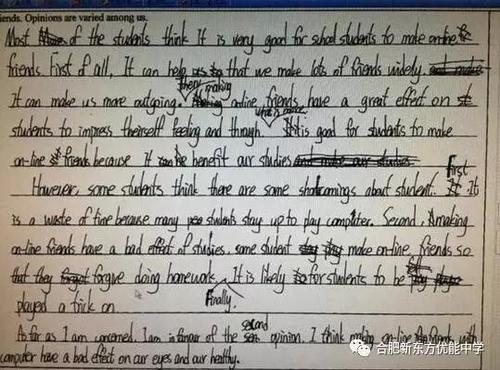 iends. Opinions are varied among us.
Most of the students think It is very good for school students to make online
friends. First of all, It can help that we make lots of friends widely
then, making
It can make us more outgoing. online friends have a great effect on
what is more
students to impress theirself feeling and though. It is good for students to make
on-line friends because It can benefit our studies
First
However, some students think there are some shortcomings about student. It
is a waste of time because many students stay up to play computer. Second, making
on-line friends have a bad effect of studies. some student make on-line friends so
that they forgive doing homework. It is likely for students to be
Finally
played a trick on.
second
As far as I am concerned, I am in favour of the opinion. I think making on-line friends with
computer have a bad effect on our eyes and our healthy.
合肥新东方优能中学